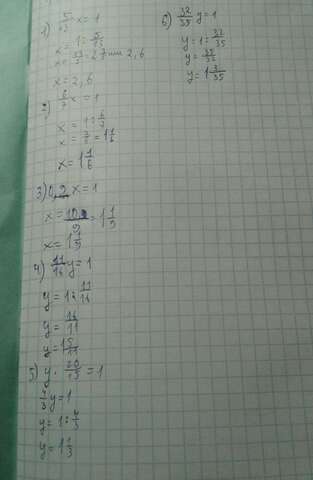 1) 5/13 x = 1
x = 1 : 5/13
x = 13/5 = 2,6
x = 2,6
2) 6/7 x = 1
x = 1 : 6/7
x = 7/6 = 1 1/6
x = 1 1/6
3) 0,9 x = 1
x = 10/9 = 1 1/9
x = 1 1/9
4) 11/16 y = 1
y = 1 : 11/16
y = 16/11
y = 1 5/11
5) y · 20/15 = 1
4/3 y = 1
y = 1 : 4/3
y = 1 1/3
6) 32/35 y = 1
y = 1 : 32/35
y = 35/32
y = 1 3/35